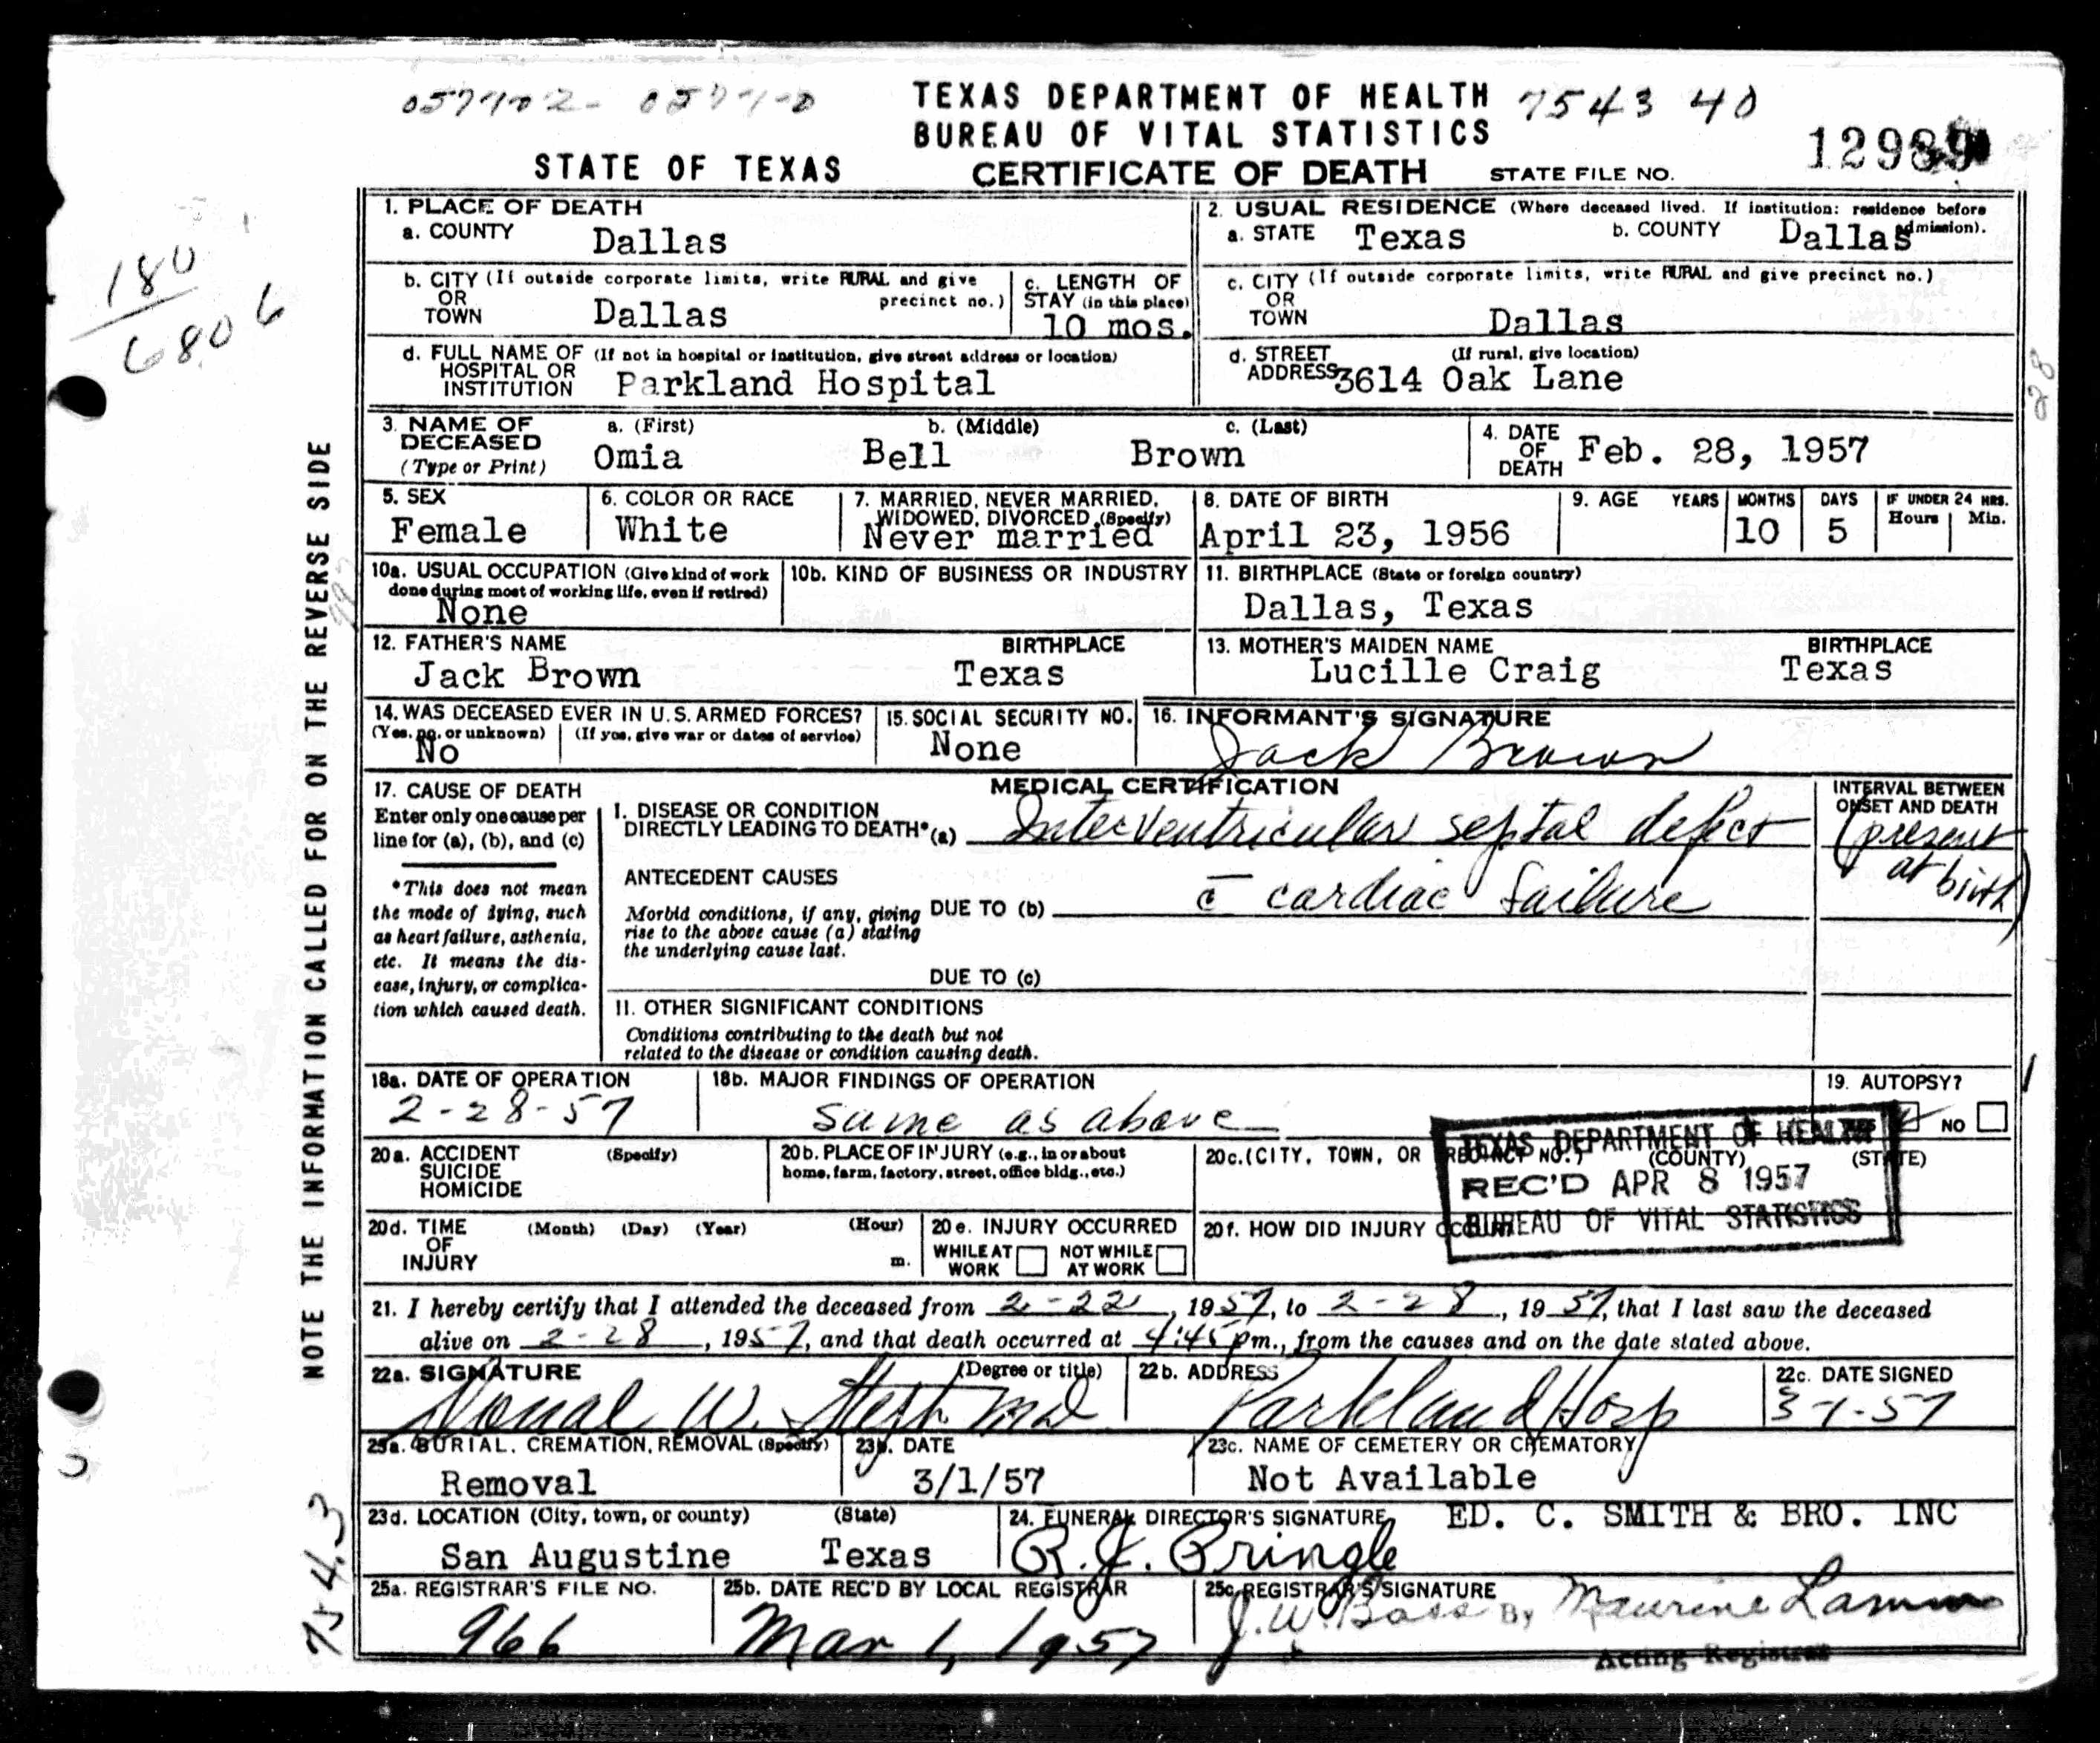 TEXAS DEPARTMENT OF HEALTH 7543 40
BUREAU OF VITAL STATISTICS
STATE OF TEXAS CERTIFICATE OF DEATH STATE FILE NO.
180
6806
NOTE THE INFORMATION CALLED FOR ON THE REVERSE SIDE
7543
28
1. PLACE OF DEATH
a. COUNTY Dallas
2. USUAL RESIDENCE (Where deceased lived. If institution: residence before admission).
a. STATE Texas b. COUNTY Dallas
b. CITY (If outside corporate limits, write RURAL and give precinct no.)
OR
TOWN Dallas
c. LENGTH OF
STAY (in this place)
10 mos.
c. CITY (If outside corporate limits, write RURAL and give precinct no.)
OR
TOWN Dallas
d. FULL NAME OF (If not in hospital or institution, give street address or location)
HOSPITAL OR
INSTITUTION Parkland Hospital
d. STREET (If rural, give location)
ADDRESS 3614 Oak Lane
3. NAME OF
DECEASED
(Type or Print)
a. (First) b. (Middle) c. (Last)
Omia Bell Brown
4. DATE
OF
DEATH Feb. 28, 1957
5. SEX
Female
6. COLOR OR RACE
White
7. MARRIED, NEVER MARRIED,
WIDOWED, DIVORCED (Specify)
Never married
8. DATE OF BIRTH
April 23, 1956
9. AGE YEARS MONTHS DAYS IF UNDER 24 HRS.
Hours Min.
10 5
10a. USUAL OCCUPATION (Give kind of work
done during most of working life, even if retired)
None
10b. KIND OF BUSINESS OR INDUSTRY
11. BIRTHPLACE (State or foreign country)
Dallas, Texas
12. FATHER'S NAME BIRTHPLACE
Jack Brown Texas
13. MOTHER'S MAIDEN NAME BIRTHPLACE
Lucille Craig Texas
14. WAS DECEASED EVER IN U.S. ARMED FORCES?
(Yes, no, or unknown) (If yes, give war or dates of service)
No
15. SOCIAL SECURITY NO.
None
16. INFORMANT'S SIGNATURE
Jack Brown
17. CAUSE OF DEATH
Enter only one cause per
line for (a), (b), and (c)
*This does not mean
the mode of dying, such
as heart failure, asthenia,
etc. It means the dis-
ease, injury, or complica-
tion which caused death.
MEDICAL CERTIFICATION
I. DISEASE OR CONDITION
DIRECTLY LEADING TO DEATH* (a) Interventricular septal defect
ANTECEDENT CAUSES
Morbid conditions, if any, giving
rise to the above cause (a) stating
the underlying cause last.
DUE TO (b) c̄ cardiac failure
DUE TO (c)
II. OTHER SIGNIFICANT CONDITIONS
Conditions contributing to the death but not
related to the disease or condition causing death.
INTERVAL BETWEEN
ONSET AND DEATH
(present
at birth)
18a. DATE OF OPERATION
2-28-57
18b. MAJOR FINDINGS OF OPERATION
same as above
19. AUTOPSY?
NO
20a. ACCIDENT (Specify)
SUICIDE
HOMICIDE
20b. PLACE OF INJURY (e.g., in or about
home, farm, factory, street, office bldg., etc.)
20c. (CITY, TOWN, OR PRECINCT NO.) (COUNTY) (STATE)
TEXAS DEPARTMENT OF HEALTH
REC'D APR 8 1957
BUREAU OF VITAL STATISTICS
20d. TIME (Month) (Day) (Year) (Hour)
OF
INJURY m.
20e. INJURY OCCURRED
WHILE AT
WORK
NOT WHILE
AT WORK
20f. HOW DID INJURY OCCUR?
21. I hereby certify that I attended the deceased from 2-22, 1957, to 2-28, 1957, that I last saw the deceased
alive on 2-28, 1957, and that death occurred at 4:45 pm., from the causes and on the date stated above.
22a. SIGNATURE (Degree or title)
W. md
22b. ADDRESS
Parkland Hosp
22c. DATE SIGNED
3-1-57
23a. BURIAL, CREMATION, REMOVAL (Specify)
Removal
23b. DATE
3/1/57
23c. NAME OF CEMETERY OR CREMATORY
Not Available
23d. LOCATION (City, town, or county) (State)
San Augustine Texas
24. FUNERAL DIRECTOR'S SIGNATURE ED. C. SMITH & BRO. INC
R.J. Pringle
25a. REGISTRAR'S FILE NO.
966
25b. DATE REC'D BY LOCAL REGISTRAR
Mar 1, 1957
25c. REGISTRAR'S SIGNATURE
J.W. Bass By Maurine
Acting Registrar